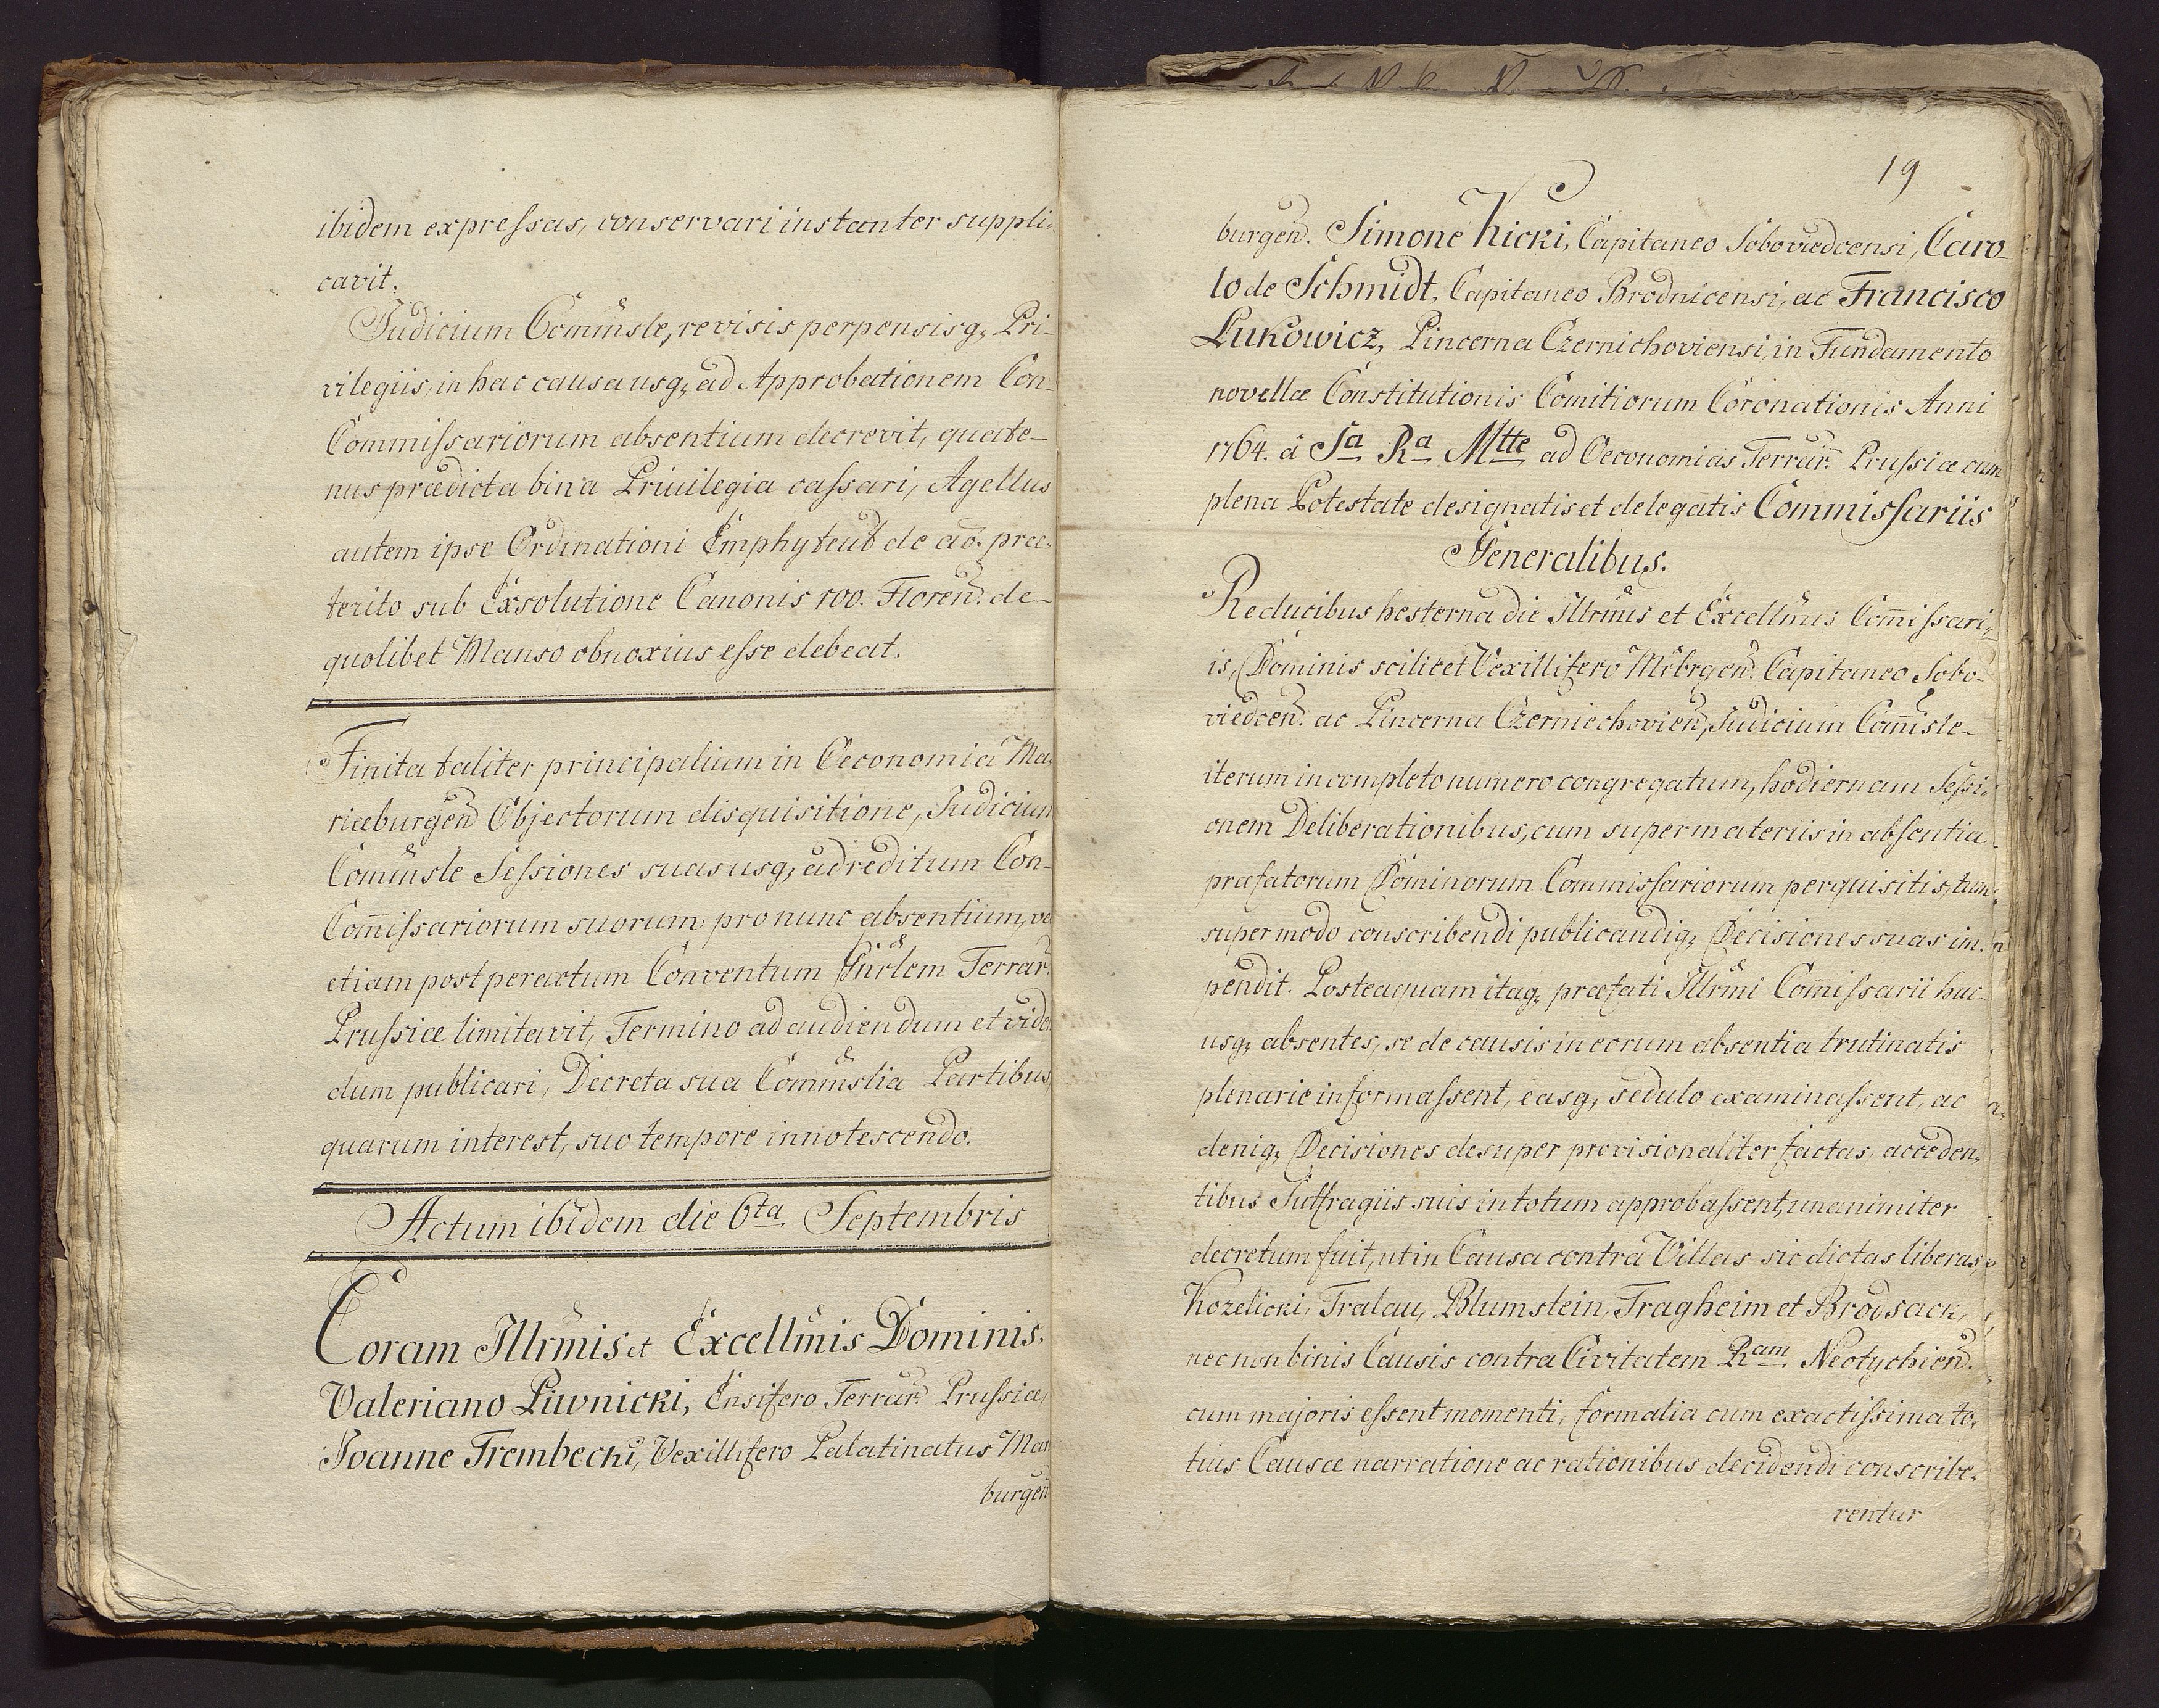 ibidem expressas, conservari instanter suppli-
cavit.
Judicium Commsle, revisis perpensisq, Pri-
vilegiis, in hac causa usq, ad Approbationem Con-
Commissariorum absentium decrevit, quate-
nus prædicta bina Privilegia cassari, Agellus
autem ipse Ordinationi Emphyteut de ao. præ-
terito sub Exsolutione Canonis 100. Floren. de
quolibet Manso obnoxius esse debeat.
Finita taliter principalium in Oeconomia Ma-
riæburgen Objectorum disquisitione, Judicium
Commsle Sessiones suas usq, ad reditum Con-
Com̅issariorum suorum pro nunc absentium,
etiam post peractum Conventum Gnrlem Terrar.
Prussiæ limitavit, Termino ad audiendum et viden
dum publicari, Decreta sua Commslia Partibus
quarum interest, suo tempore innotescendo.
Actum ibidem die 6ta Septembris
Coram Illrmis et Excellmis Dominis,
Valeriano Piwnicki, Ensifero Terrar. Prussiæ,
Joanne Trembecki, Vexillifero Palatinatus Mar
burgen
19
burgen. Simone Kicki, Capitaneo Sobowiedcensi, Caro-
lo de Schmidt, Capitaneo Brodnicensi, ac Francisco
Lukowicz, Pincerna Czernichoviensi, in Fundamento
novellæ Constitutionis Comitiorum Coronationis Anni
1764. â Sa Ra Mtte ad Oeconomias Terrar. Prussiæ cum
plena Potestate designatis et delegatis Commissariis
Generalibus.
Reducibus hesterna die Illrmis et Excellmis Com̅issari-
is, Dominis scilicet Vexillifero Mrbrgen. Capitaneo Sobo-
viedcen. ac Pincerna Czerniechovien, Judicium Com̅isle
iterum in completo numero congregatum, hodiernam Sessi-
onem Deliberationibus, cum super materiis in absentia
præfatorum Dominorum Commissariorum perquisitis, tum
super modo conscribendi publicandiq, Decisiones suas im-
pendit. Posteaquam itaq, præfati Illrmi Com̅issarii hac-
usq, absentes, se de causis in eorum absentia trutinatis
plenarie informassent, easq, sedulo examinassent, ac
deniq, Decisiones desuper provisionaliter factas, acceden-
tibus Suffragiis suis in totum approbassent, unanimiter
decretum fuit, ut in Causa contra Villas sic dictas liberas,
Kozelicki, Tralau, Blumstein, Tragheim et Brodsack,
nec non binis Causis contra Civitatem Ram Neotychien.
cum majoris essent momenti, formalia cum exactissima to-
tius Causæ narratione ac rationibus decidendi conscribe-
rentur